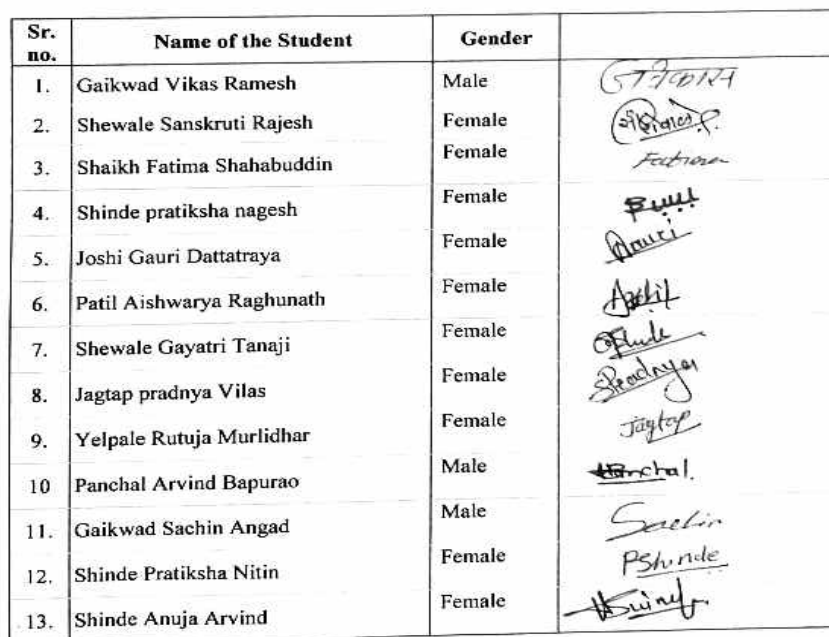 Sr. no. Name of the Student Gender
1. Gaikwad Vikas Ramesh Male
2. Shewale Sanskruti Rajesh Female
3. Shaikh Fatima Shahabuddin Female
4. Shinde pratiksha nagesh Female
5. Joshi Gauri Dattatraya Female Gauri
6. Patil Aishwarya Raghunath Female
7. Shewale Gayatri Tanaji Female
8. Jagtap pradnya Vilas Female Pradnya
9. Yelpale Rutuja Murlidhar Female Jagtap
10 Panchal Arvind Bapurao Male Panchal.
11. Gaikwad Sachin Angad Male Sachin
12. Shinde Pratiksha Nitin Female PShinde
13. Shinde Anuja Arvind Female